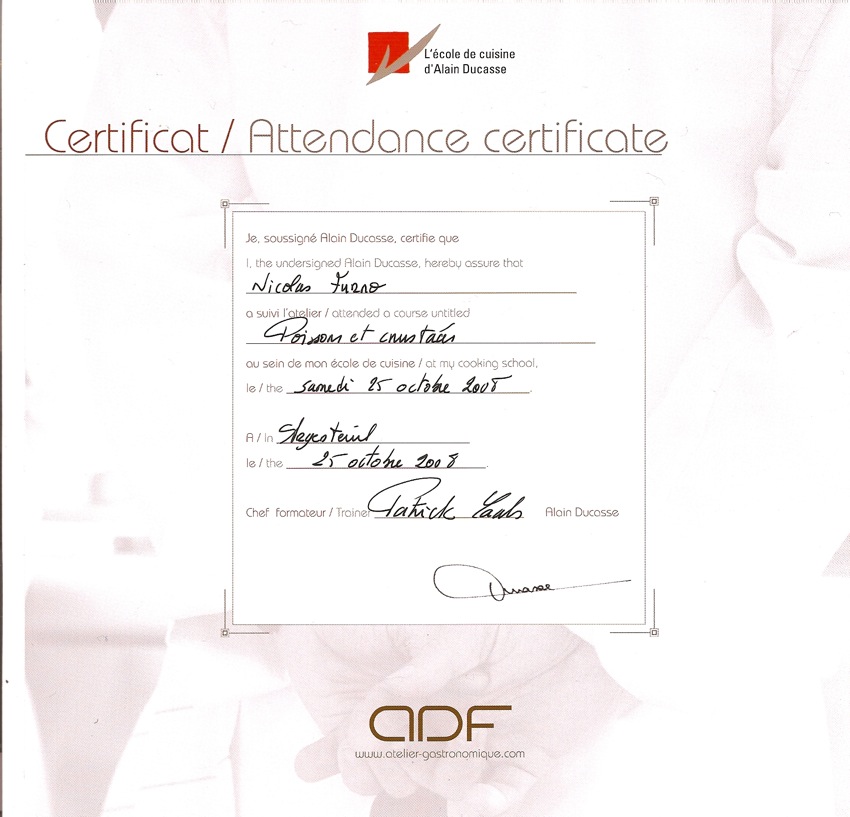 L'école de cuisine
d'Alain Ducasse
Certificat / Attendance certificate
Je, soussigné Alain Ducasse, certifie que
I, the undersigned Alain Ducasse, hereby assure that
Nicolas Furno
a suivi l'atelier / attended a course untitled
Poissons et crustacés
au sein de mon école de cuisine / at my cooking school,
le / the samedi 25 octobre 2008.
A / in
le / the 25 octobre 2008.
Chef formateur / Trainer Patrick Alain Ducasse
ADF
www.atelier-gastronomique.com